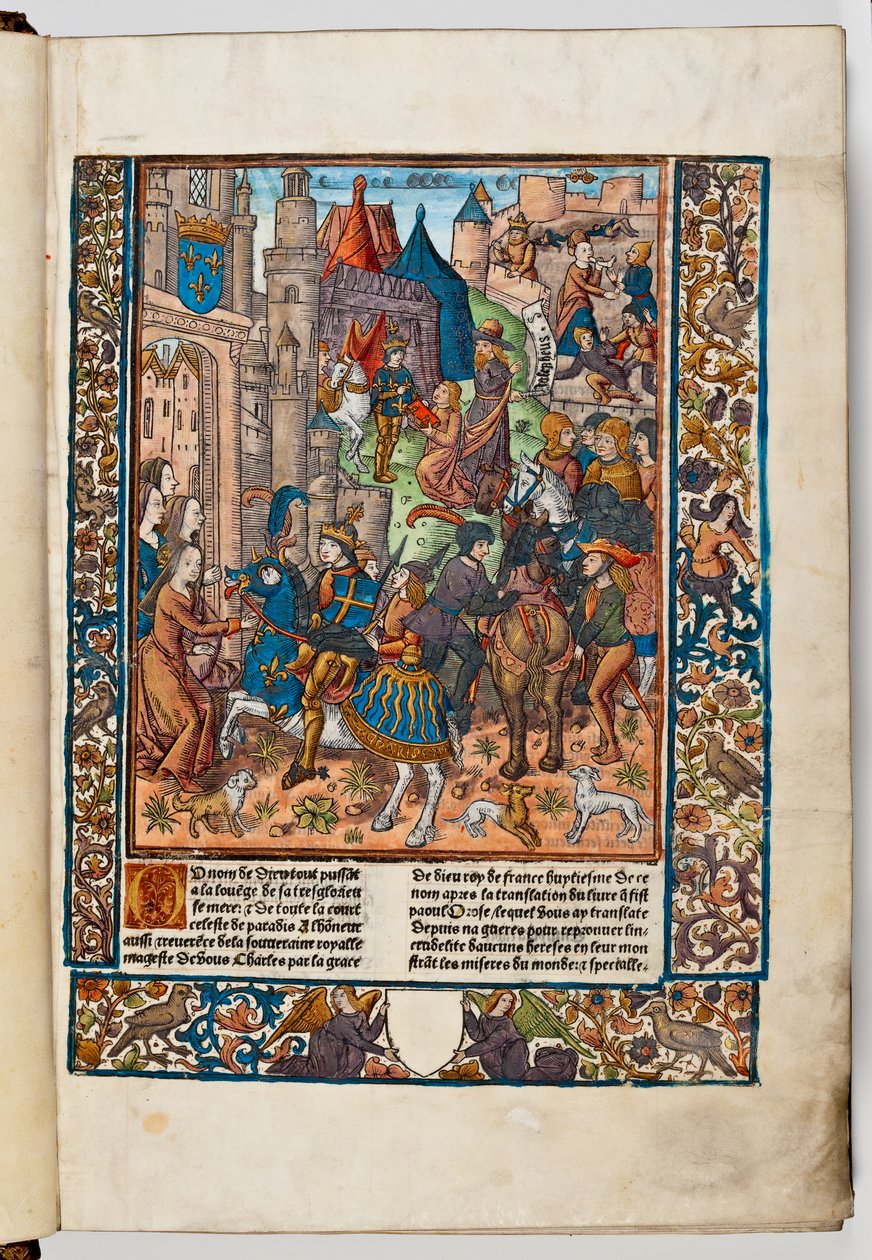 Iosepheus
V nom de Dieu tout pussāt
a la louēge de sa tresglorieu
se mere: ⁊ de toute la court
celeste de paradis A lhōneur
aussi ⁊ reuerēce de la souueraine royalle
mageste de vous Charles par la grace
de dieu roy de france huytiesme de ce
nom apres la translation du liure q̄ fist
paoul Orose / lequel vous ay translate
depuis na gueres pour reprouuer lin-
credelite daucuns hereses en leur mon
strāt les miseres du monde: ⁊ specialle-